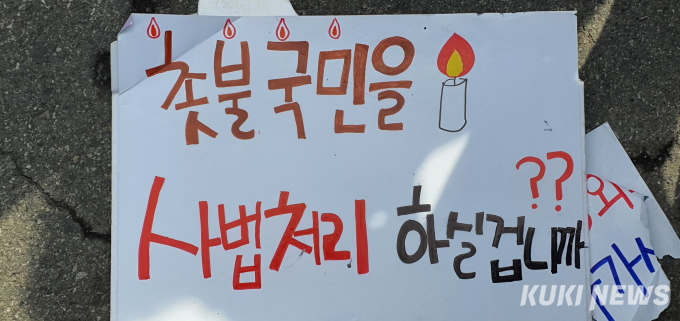 촛불 국민을
사법처리 하실겁니까??
KUKI NEWS